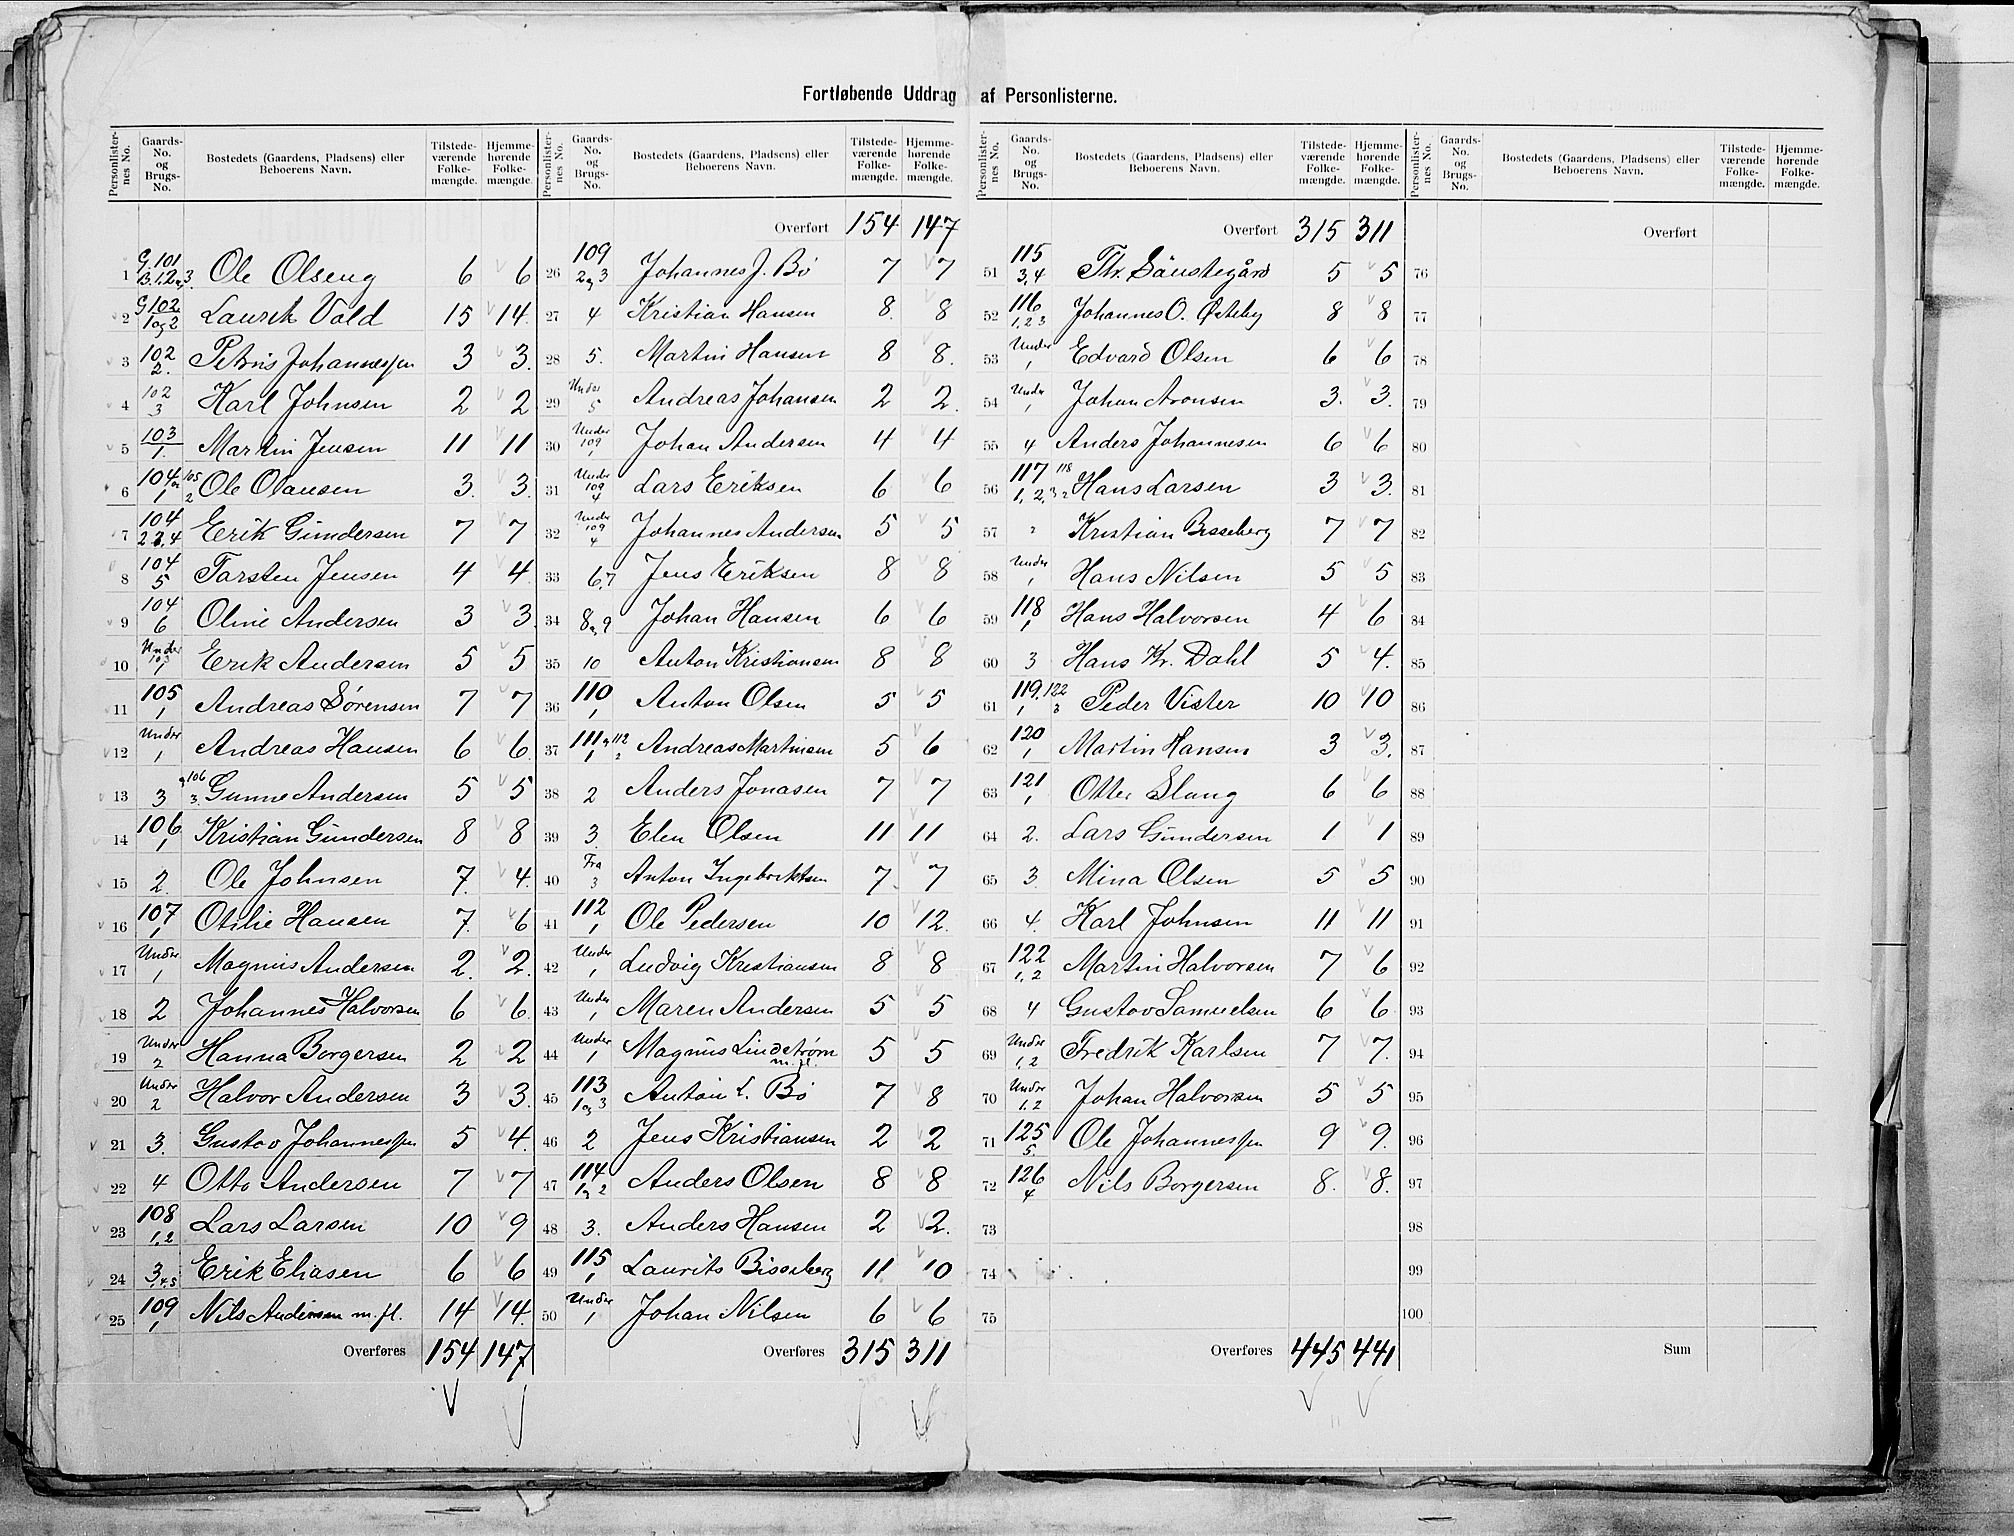 Fortløbende Uddrag af Personlisterne.
Personlister-nes No. Gaards-No. og Brugs-No. Bostedets (Gaardens, Pladsens) eller Beboerens Navn. Tilstede-værende Folke-mængde. Hjemme-hørende Folke-mængde.
1 G. 101 B. 1. 2 og 3. Ole Olseng 6 6
2 G 102 1 og 2 Laurits Vold 15 14
3 102 2. Petrus Johannessen 3 3.
4 102 3 Karl Johnsen 2 2
5 103 1. Martin Jensen 11 11
6 104 1 105 2 Ole Olausen 3. 3.
7 104 2 3. 4 Erik Gundersen 7 7
8 104 5 Torsten Jensen 4 4
9 104 6 Oline Andersen 3 3
10 Under 103 1 Erik Andersen 5 5
11 105 1 Andreas Sørensen 7 7
12 Under 1 Andreas Hansen 6 6.
13 3 106 3. Gunne Andersen 5 5
14 106 1 Kristian Gundersen 8 8
15 2. Ole Johnsen 7. 4.
16 107 1 Otilie Hansen 7. 6
17 Under 1 Magnus Andersen 2. 2.
18 2 Johannes Halvorsen 6 6.
19 Under 2 Hanna Borgersen 2 2
20 Under 2 Halvor Andersen 3 3.
21 3. Gustav Johannessen 5 4.
22 4 Otto Andersen 7 7
23 108 1, 2 Lars Larsen 10 9
24 3, 4, 5 Erik Eliasen 6 6
25 109 1 Nils Andersen m. fl. 14 14.
Overføres 154 147
Personlister-nes No. Gaards-No. og Brugs-No. Bostedets (Gaardens, Pladsens) eller Beboerens Navn. Tilstede-værende Folke-mængde. Hjemme-hørende Folke-mængde.
Overført 154 147
26 109 2 og 3 Johannes J. Bø 7 7
27 4 Kristian Hansen 8. 8
28 5. Martin Hansen 8 8.
29 Under 5 Andreas Johansen 2 2.
30 Under 109 1 Johan Andersen 4 4
31 Under 109 4 Lars Eriksen 6 6
32 Under 109 4 Johannes Andersen 5 5
33 6, 7 Jens Eriksen 8 8
34 8 og 9 Johan Hansen 6 6
35 10 Anton Kristiansen 8 8
36 110 1 Anton Olsen 5 5
37 111 1 og 112 2 Andreas Martinsen 5 6
38 2 Anders Jonasen 7 7
39 3. Elen Olsen 11 11
40 Fra 3 Anton Ingebrektsen 7. 7
41 112 1 Ole Pedersen 10 12.
42 Under 1 Ludvig Kristiansen 8 8
43 Under 1 Maren Andersen 5 5
44 Under 1 Magnus Lindstrøm m. fl. 5 5
45 113 1 og 3 Anton L. Bø 7 8
46 2 Jens Kristiansen 2 2
47 114 1 og 2 Anders Olsen 8 8
48 3. Anders Hansen 2 2.
49 115 1 Laurits Bisseberg 11 10
50 Under 1 Johan Nilsen 6 6
Overføres 315 311
Personlister-nes No. Gaards-No. og Brugs-No. Bostedets (Gaardens, Pladsens) eller Beboerens Navn. Tilstede-værende Folke-mængde. Hjemme-hørende Folke-mængde.
Overført 315 311
51 115 3, 4 Thr. Sønstegård 5 5
52 116 1, 2 3 Johannes O. Østeby 8 8
53 Under 1 Edvard Olsen 6 6
54 Under 1 Johan Aronsen 3. 3.
55 4 Anders Johannesen 6 6
56 117 1, 2, 3 118 2 Hans Larsen 3 3.
57 Kristian Bisseberg 7 7
58 Under 1 Hans Nilsen 5 5
59 118 1 Hans Halvorsen 4 6
60 3 Hans Kr. Dahl 5 4.
61 119, 1 122 3 Peder Vister 10 10
62 120 1 Martin Hansen 3 3.
63 121 1 Otter Slang 6 6
64 2. Lars Gundersen 1 1
65 3. Mina Olsen 5 5
66 4. Karl Johnsen 11 11
67 122 1, 2 Martin Halvorsen 7 6
68 4 Gustav Samuelsen 6 6
69 Under 1, 2 Fredrik Karlsen 7 7.
70 Under 1, 2 Johan Halvorsen 5 5
71 125 5. Ole Johannessen 9 9.
72 126 4 Nils Borgersen 8. 8.
73
74
75
Overføres 445 441
Personlister-nes No. Gaards-No. og Brugs-No. Bostedets (Gaardens, Pladsens) eller Beboerens Navn. Tilstede-værende Folke-mængde. Hjemme-hørende Folke-mængde.
Overført
76
77
78
79
80
81
82
83
84
85
86
87
88
89
90
91
92
93
94
95
96
97
98
99
100
Sum